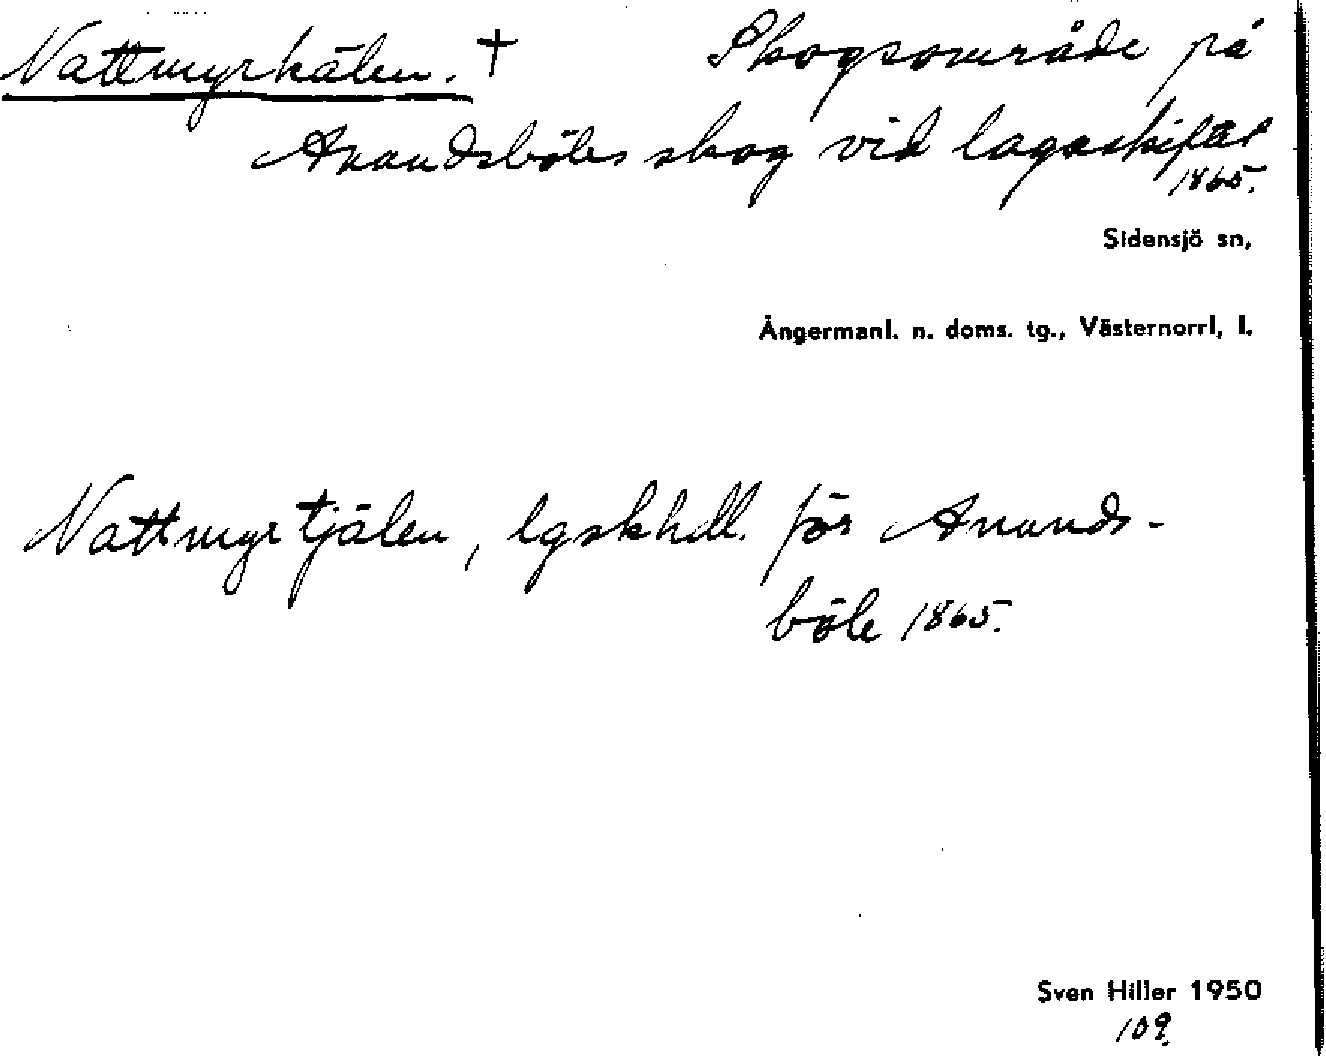 Nattmyrkälen. † Skogsområde på
Anundsböles skog vid lagaskiftet
1865.
Sidensjö sn,
Ångermanl. n. doms. tg., Västernorrl, l.
Nattmyrtjälen, lgskhdl. för Anunds-
böle 1865.
Sven Hiller 1950
109.